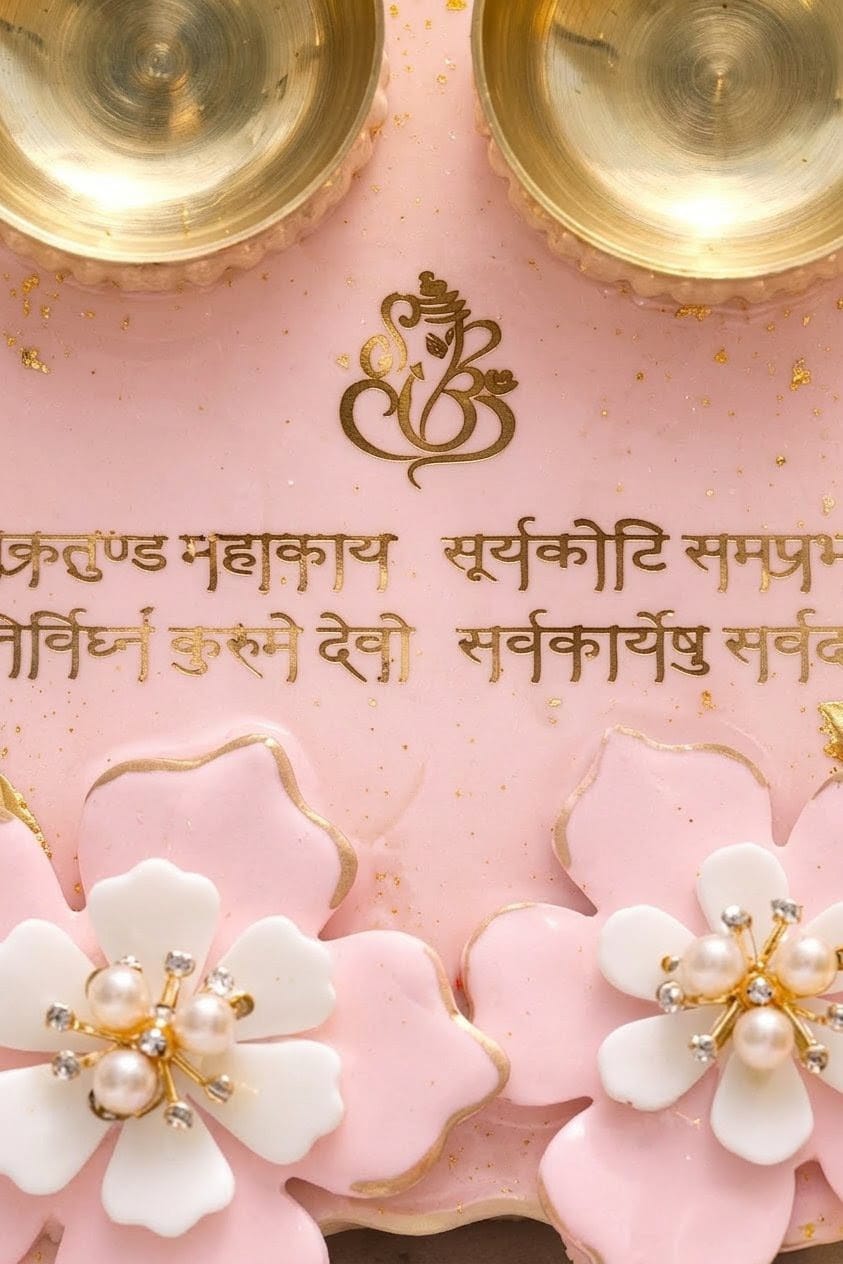 क्रतुण्ड महाकाय सूर्यकोटि समप्रभ
निर्विघ्नं कुरुमे देवो सर्वकार्येषु सर्वद